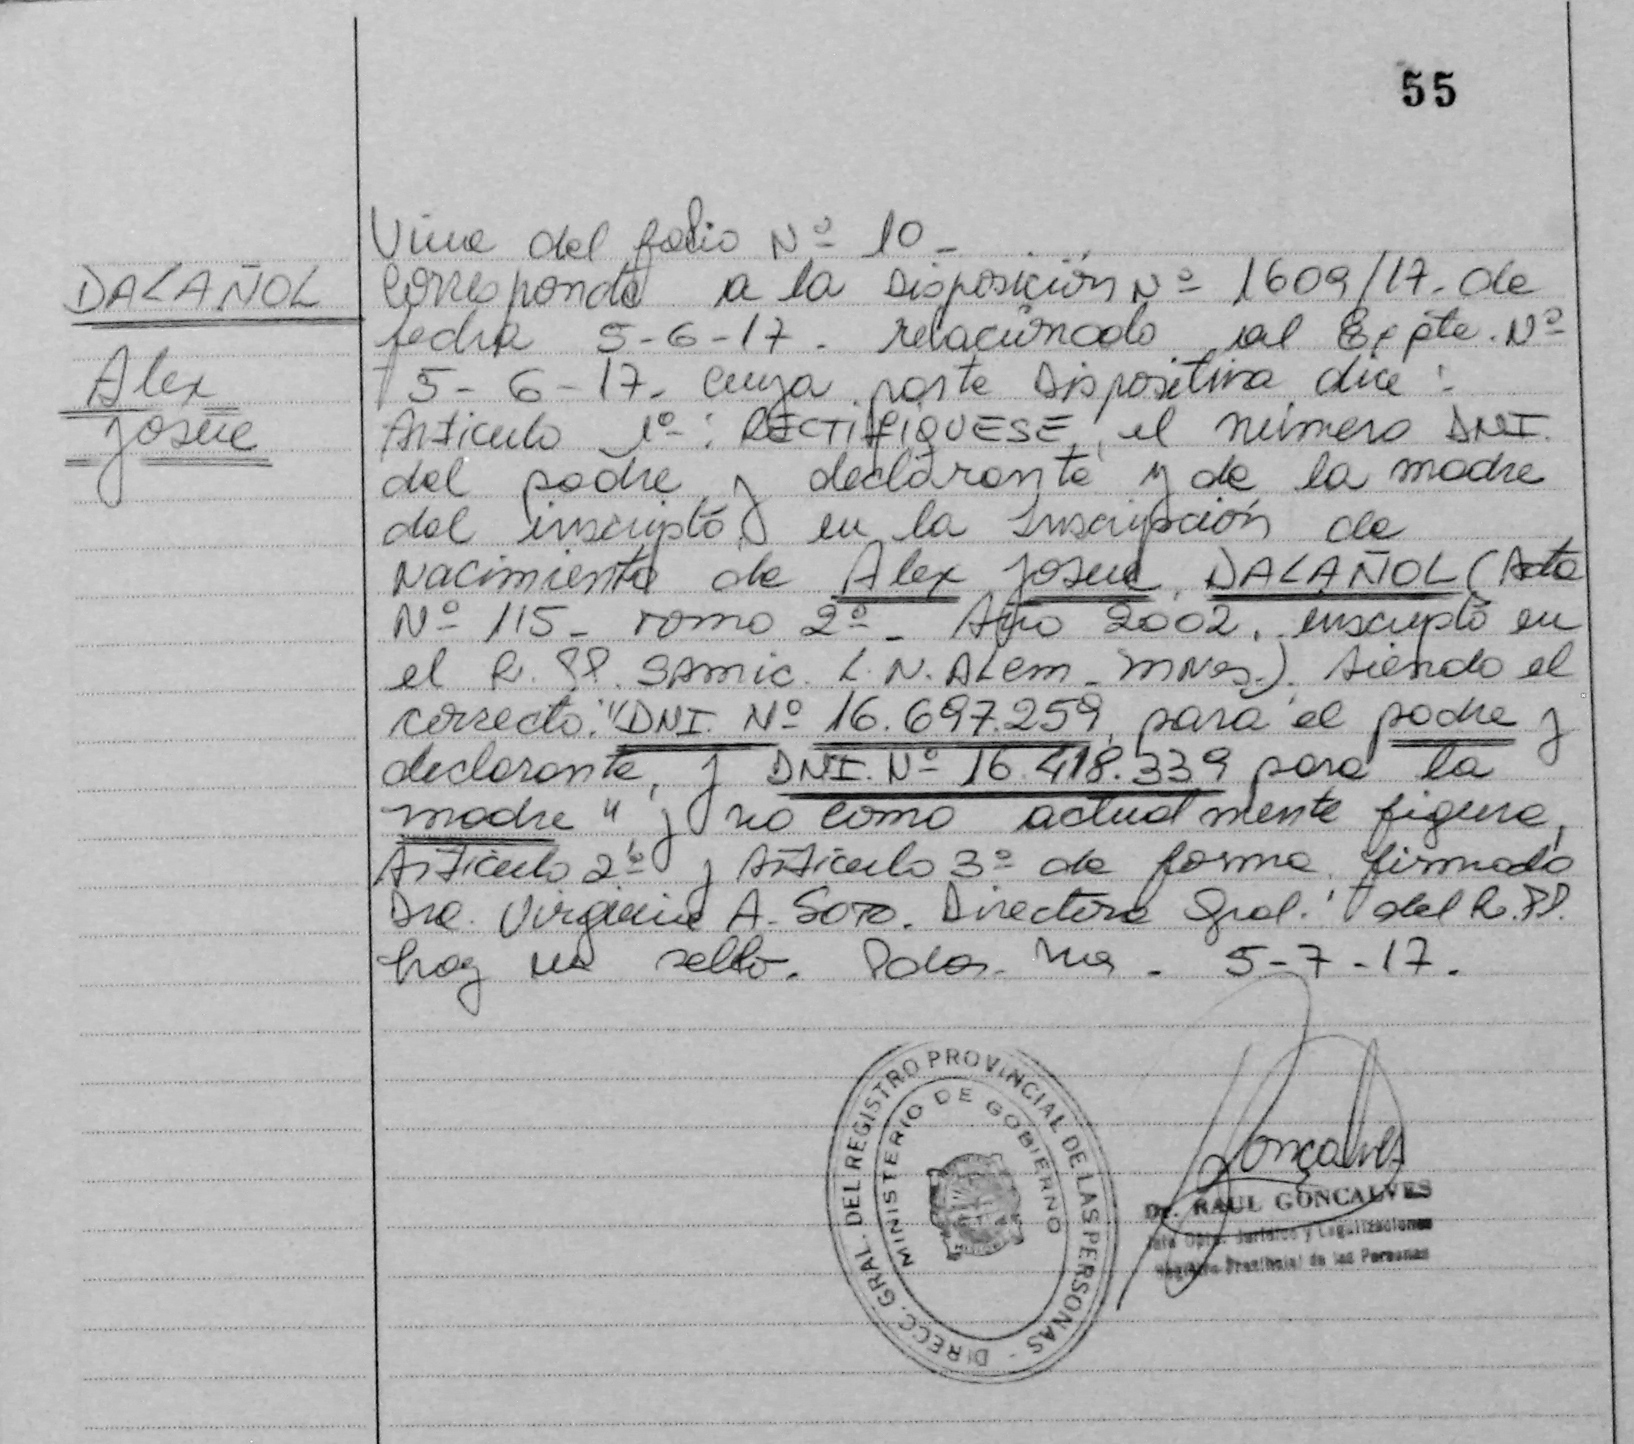 55
DALAÑOL
Alex
Josue
Viene del folio Nº 10-
Corresponde a la Disposición Nº 1609/17. de
fecha 5-6-17. relacionado al Expte. Nº
5-6-17. cuya parte Dispositiva dice:
Artículo 1º: RECTIFIQUESE, el número DNI.
del padre y declarante y de la madre
del inscripto, en la Inscripción de
Nacimiento de Alex Josue DALAÑOL (Acta
Nº 115- Tomo 2º- Año 2002, inscripto en
el R.PP. SAMIC. L.N. ALem-MNes.). Siendo el
correcto: "DNI. Nº 16.697.259, para el padre y
declarante, y DNI. Nº 16.418.339 para la
madre" y no como actualmente figura,
Artículo 2º y Artículo 3º de forma firmado
Dra. Virginia A. Soto. Directora Gral. del R.PP.
hay un sello. Pdas. Mnes. 5-7-17.
DIRECC. GRAL. DEL REGISTRO PROVINCIAL DE LAS PERSONAS -
MINISTERIO DE GOBIERNO
Gonçalves
Dr. RAUL GONCALVES
Jefe Dpto. Jurídico y Legalizaciones
Registro Provincial de las Personas